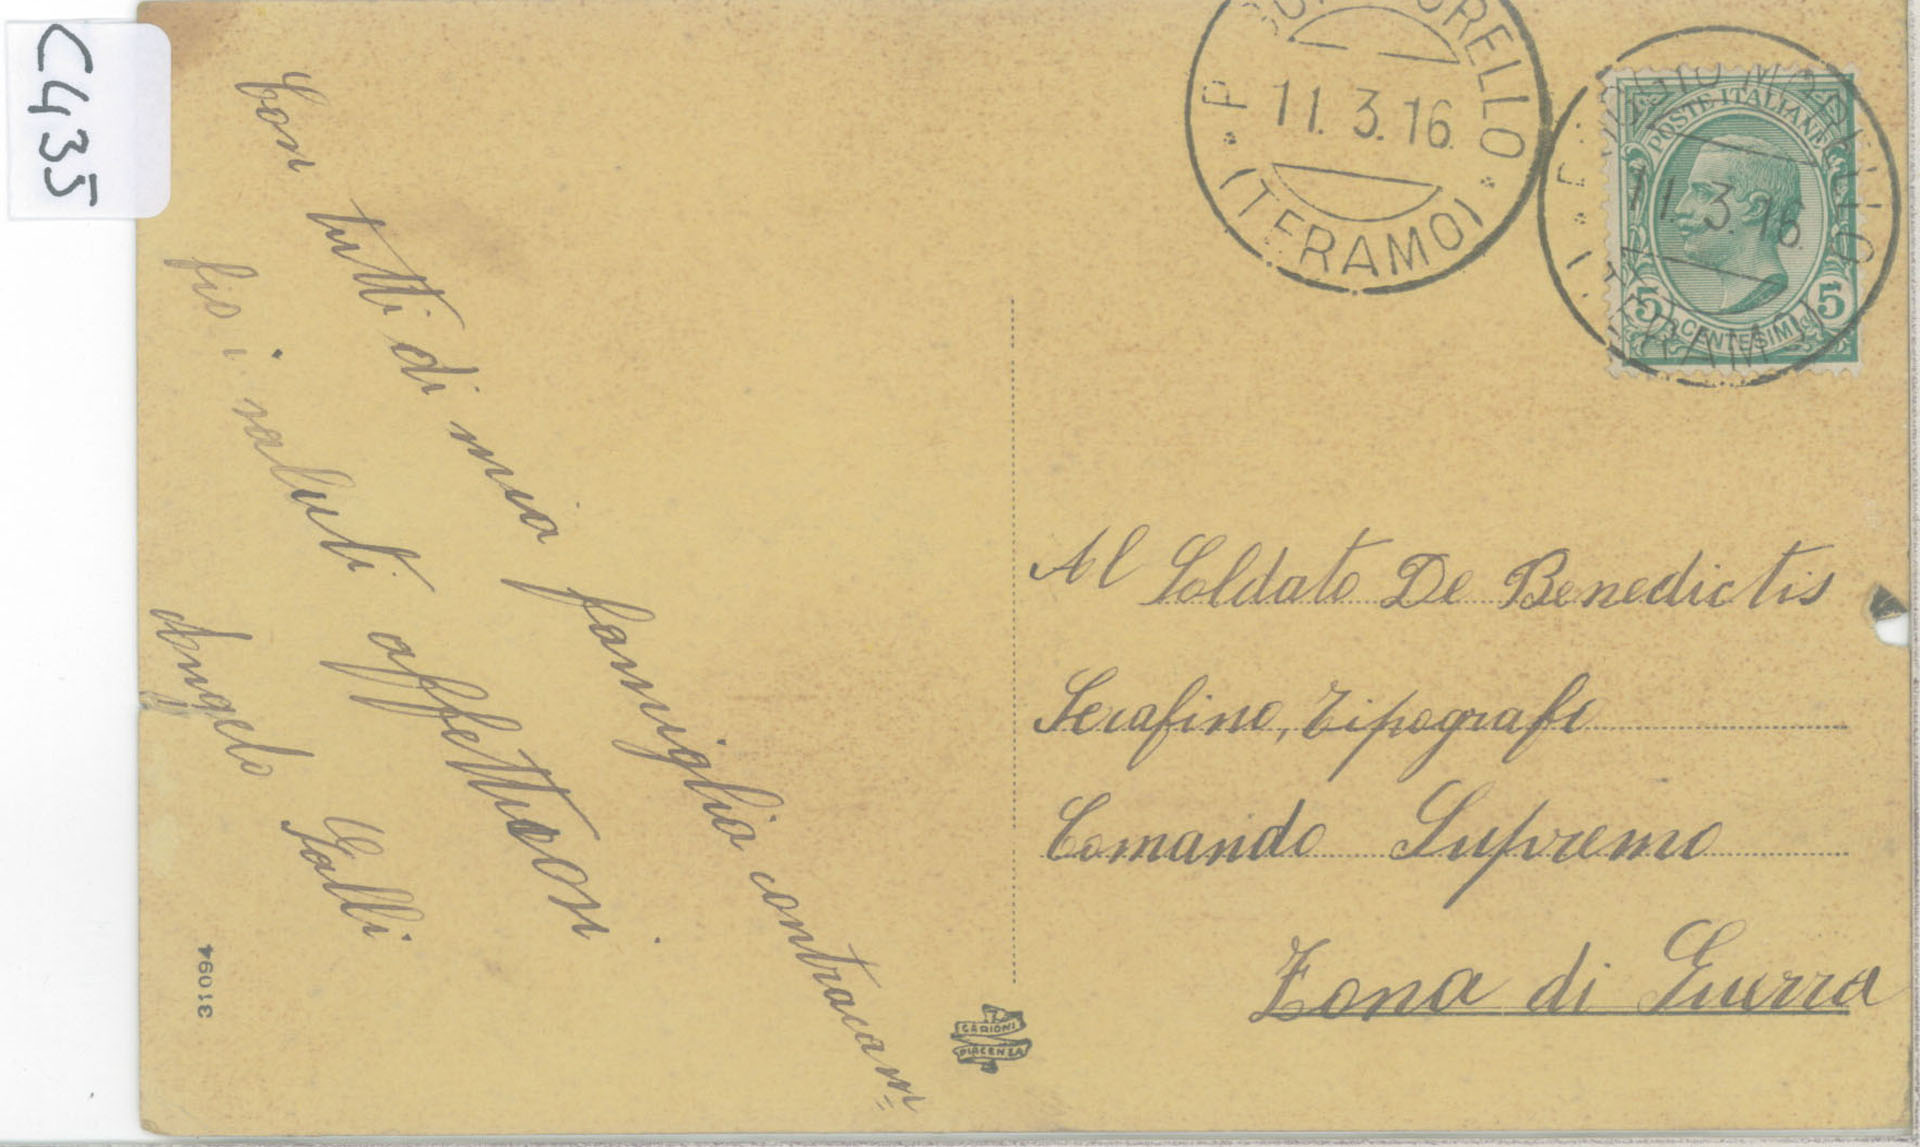 C435
Con tutti di mia famiglia contracam=
bio i saluti affettuosi.
Angelo Galli
31094
CARIONI
PIACENZA
11.3.16
(TERAMO)
POSTE ITALIANE
11.3.16
5 CENTESIMI 5
(TERAMO)
Al Soldato De Benedictis
Serafino, Tipografo
Comando Supremo
Zona di Guerra